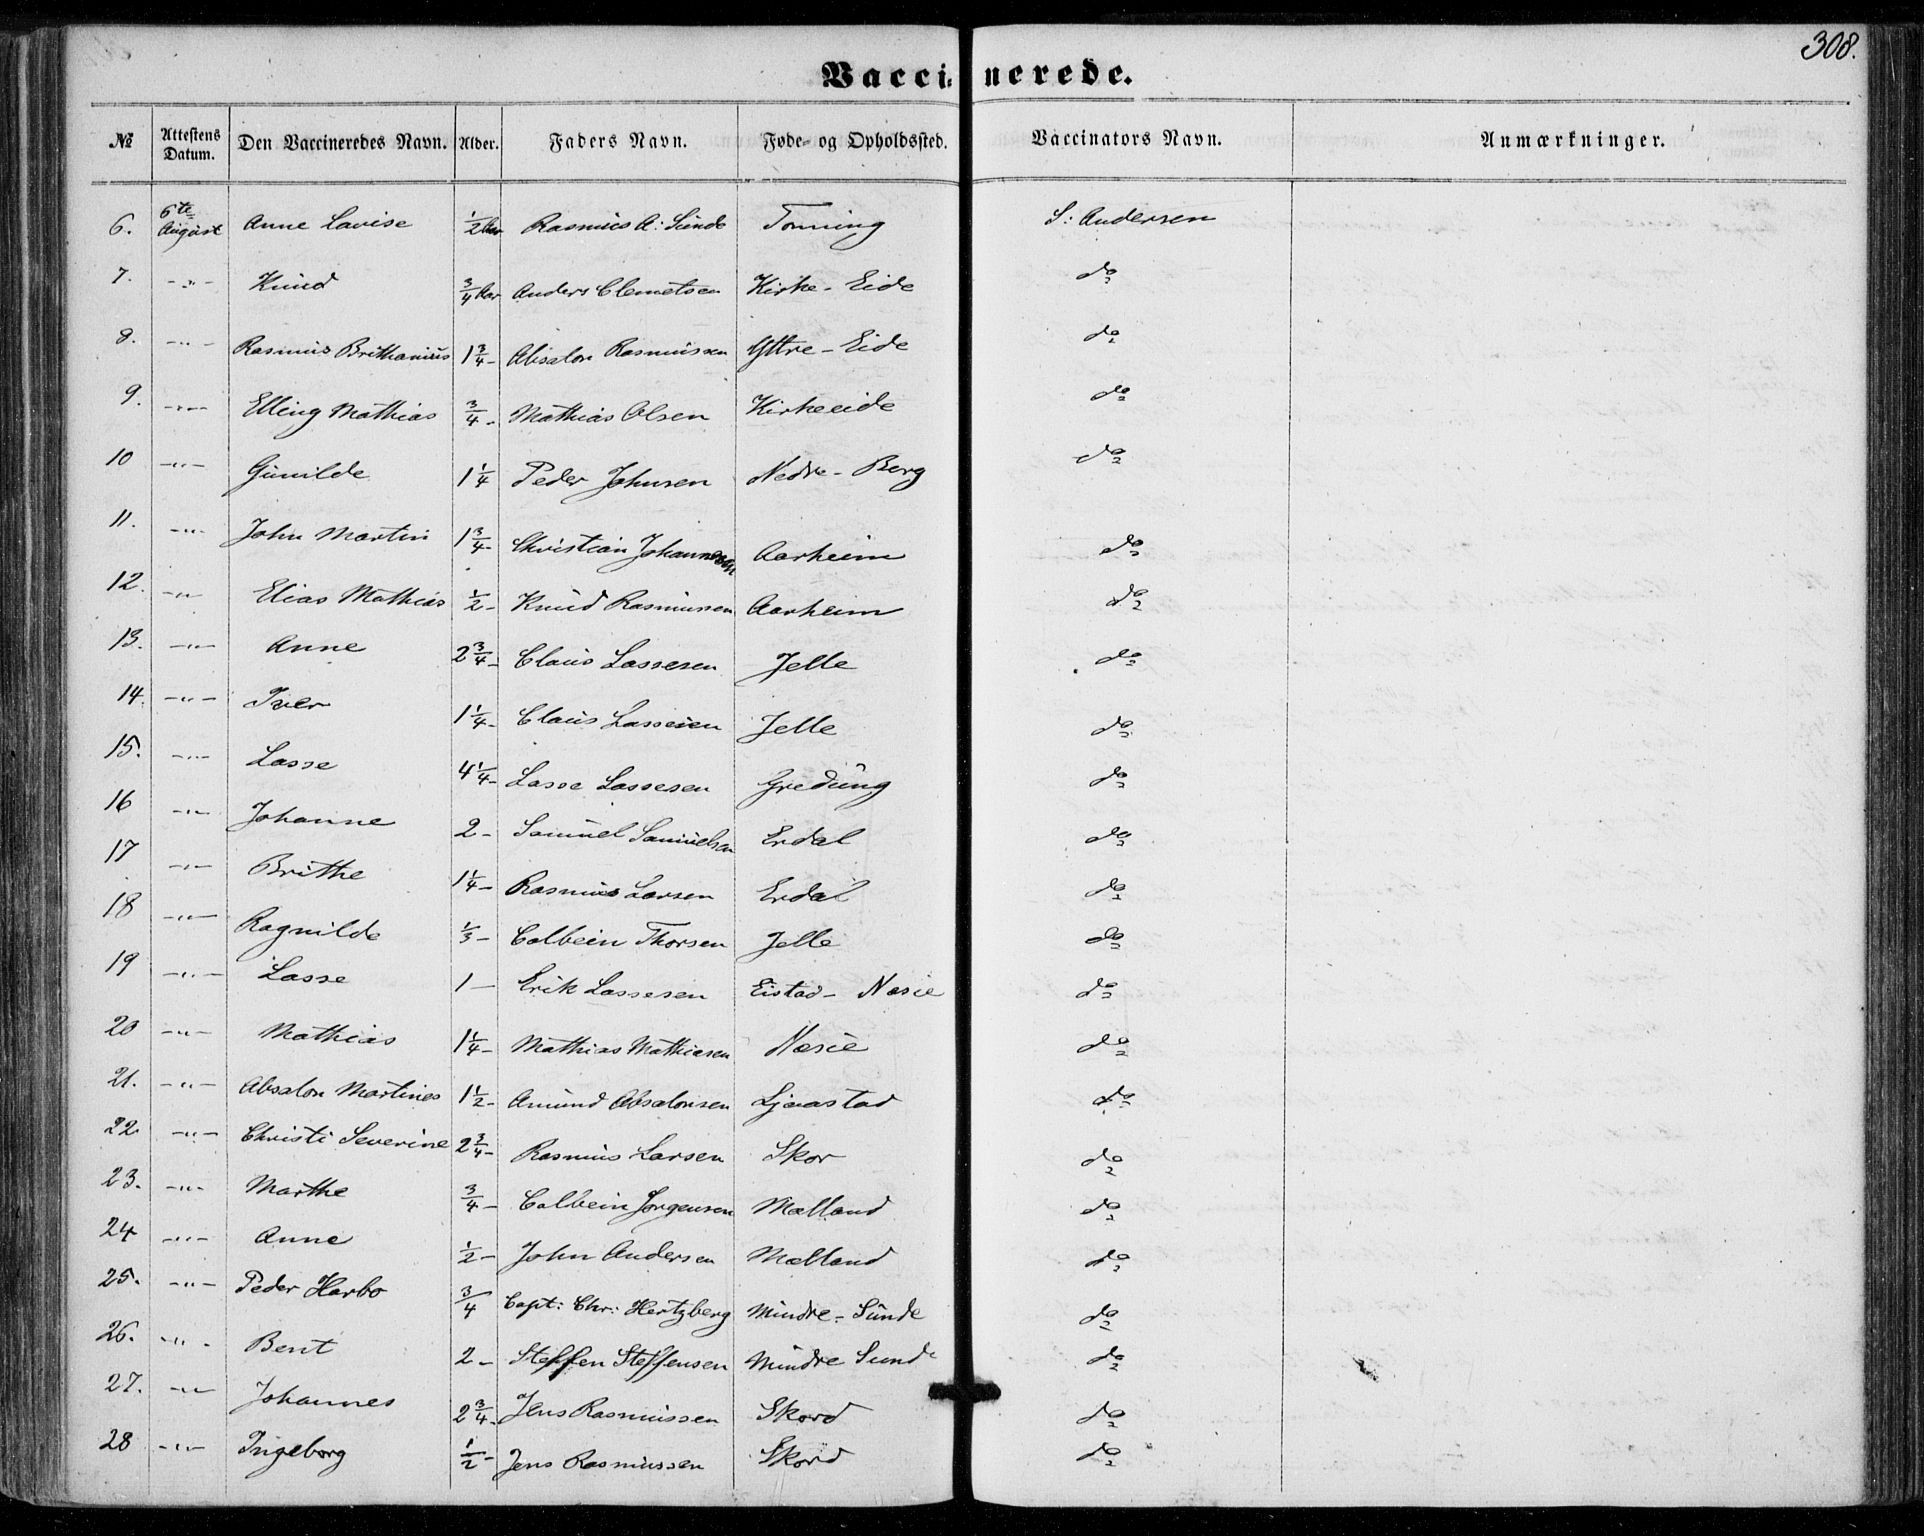 308.
Vaccinerede.
№ Attestens Datum. Den Vaccineredes Navn. Alder. Faders Navn. Føde- og Opholdssted. Vaccinators Navn. Anmærkninger.
6. 6te August Anne Lavise ½ Aar Rasmus A: Sunde Tonning S: Andersen
7. -"- Knud ¾ Aar Anders Clemetsen Kirke-Eide do
8. -"- Rasmus Brithanius 1¾- Absalon Rasmussen Yttre-Eide do
9. -"- Elling Mathias ¾- Mathias Olsen Kirkeeide do
10 -"- Gunilde 1¼ Peder Johnsen Nedre-Berg do
11. -"- John Martin 1¾- Christian Johannesen Aarheim do
12. -"- Elias Mathias ½- Knud Rasmussen Aarheim do
13. -"- Anne 2¾- Claus Lassesen Jelle do
14. -"- Iver 1¼- Claus Lassesen Jelle do
15. -"- Lasse 4¼- Lasse Lassesen Gredung do
16 -"- Johanne 2- Samuel Samuelsen Erdal do
17 -"- Brithe 1¼- Rasmus Larsen Erdal do
18 -"- Ragnilde ⅓- Colbein Thorsen Jelle do
19 -"- Lasse 1- Erik Lassesen Eistad-Nesie do
20 -"- Mathias 1¼- Mathias Mathiasen Nesie do
21. -"- Absalon Martines 1½- Amund Absalonsen Ljaastad do
22. -"- Christi Severine 2¾- Rasmus Larsen Skor do
23. -"- Marthe ¾- Colbein Jørgensen Mælland do
24 -"- Anne ½- John Andersen Mælland do
25. -"- Peder Harbo ¾ Capt: Chr: Hertzberg Mindre-Sunde do
26. -"- Bent 2- Steffen Steffensen Mindre Sunde do
27. -"- Johannes 2¾- Jens Rasmussen Skord do
28 -"- Ingeborg ½- Jens Rasmussen Skord do